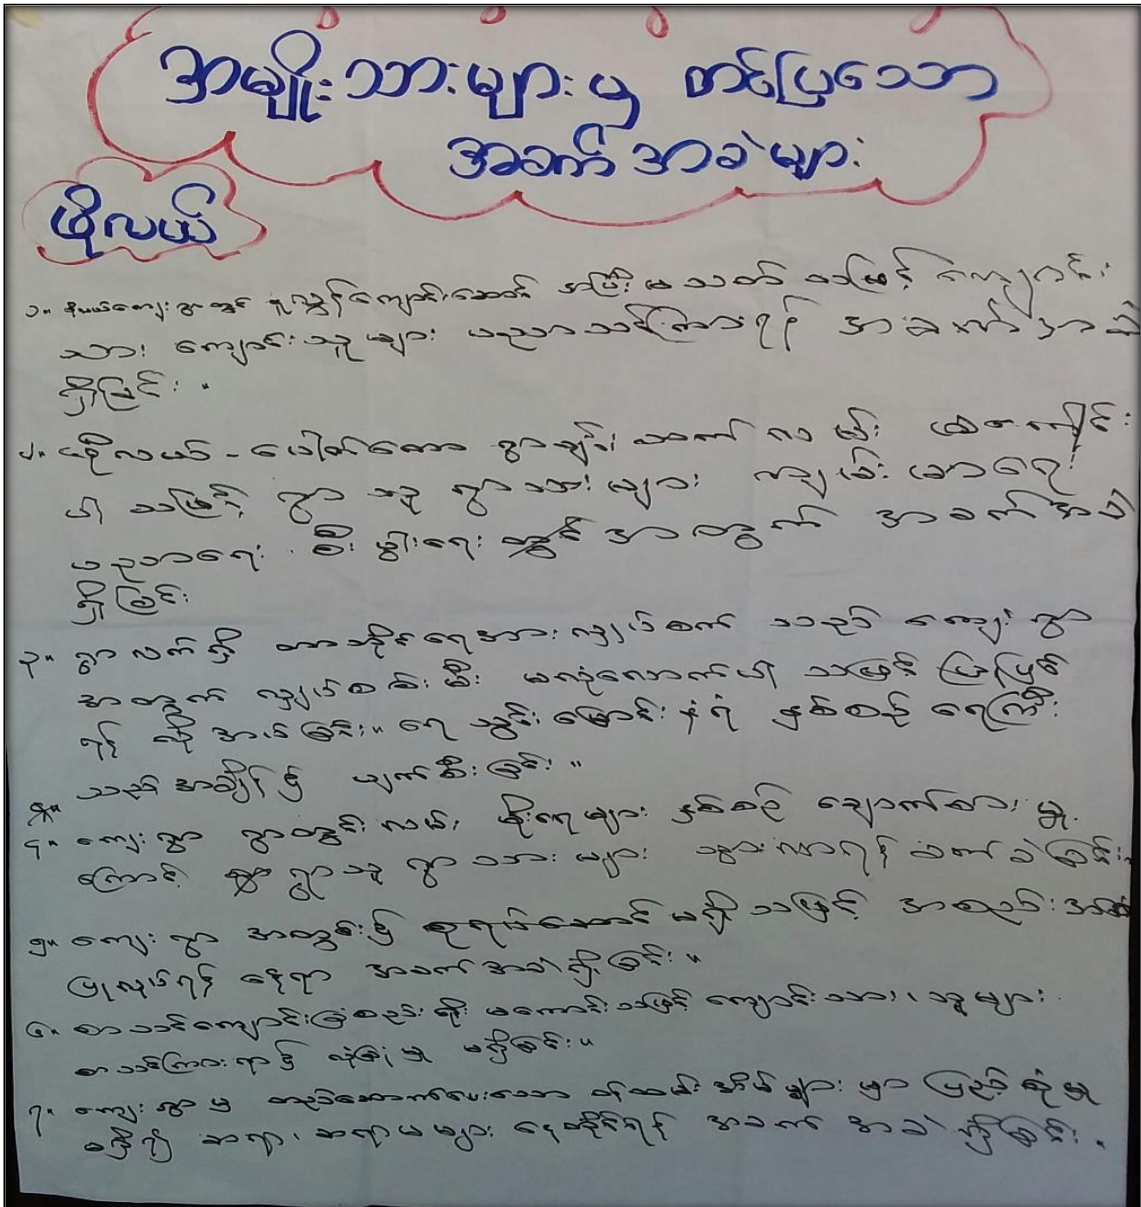 အမျိုးသားများမှ တင်ပြသော
အခက်အခဲများ
ဖိုလယ်
၁။ ဖိုလယ်ကျေးရွာတွင် မူလွန်ကျောင်းဆောင် အပြီးမသတ်သဖြင့် ကျောင်း
သား ကျောင်းသူများ ပညာသင်ကြားရန် အခက်အခဲ
ရှိခြင်း။
၂။ ဖိုလယ် - ပေါက်တော ရွာချင်းဆက်လမ်း
ပါသဖြင့် ရွာသူရွာသားများ ကျန်းမာရေး
ပညာရေး စီးပွါးရေး အတွက် အခက်အခဲ
ရှိခြင်း
၃။ ရွာလက်ရှိ သောက်ရေအားလျှပ်စက် သည် ကျေးရွာ
အတွက် လျှပ်စစ်မီး မလုံလောက်ပါသဖြင့် ပြုပြင်
ရန် လိုအပ်ခြင်း။ ရေသွင်းမြောင်းနံရံ နှစ်စဉ် ရေကြီး
သည့်အချိန်၌ ပျက်စီးခြင်း။
၄။ ကျေးရွာ ရွာတွင်းလမ်း မိုးရေများ နှစ်စဉ် ချောက်စားမှု
ကြောင့် ရွာသူရွာသားများ သွားလာရန် ခက်ခဲခြင်း။
၅။ ကျေးရွာအတွင်း၌ စုရပ်ဆောင်မရှိသဖြင့် အစည်းအဝေး
ပြုလုပ်ရန် နေရာ အခက်အခဲရှိခြင်း။
၆။ စာသင်ကျောင်းခြံစည်းရိုး မကောင်းသဖြင့် ကျောင်းသား၊သူများ
စာသင်ကြားရာ၌ လုံခြုံမှု မရှိခြင်း။
၇။ ကျေးရွာမှ တည်ဆောက်ပေးသော ဝန်ထမ်းအိမ်များမှာ ပြည့်စုံမှု
မရှိ၍ ဆရာ၊ဆရာမများ နေထိုင်ရန် အခက်အခဲရှိခြင်း။